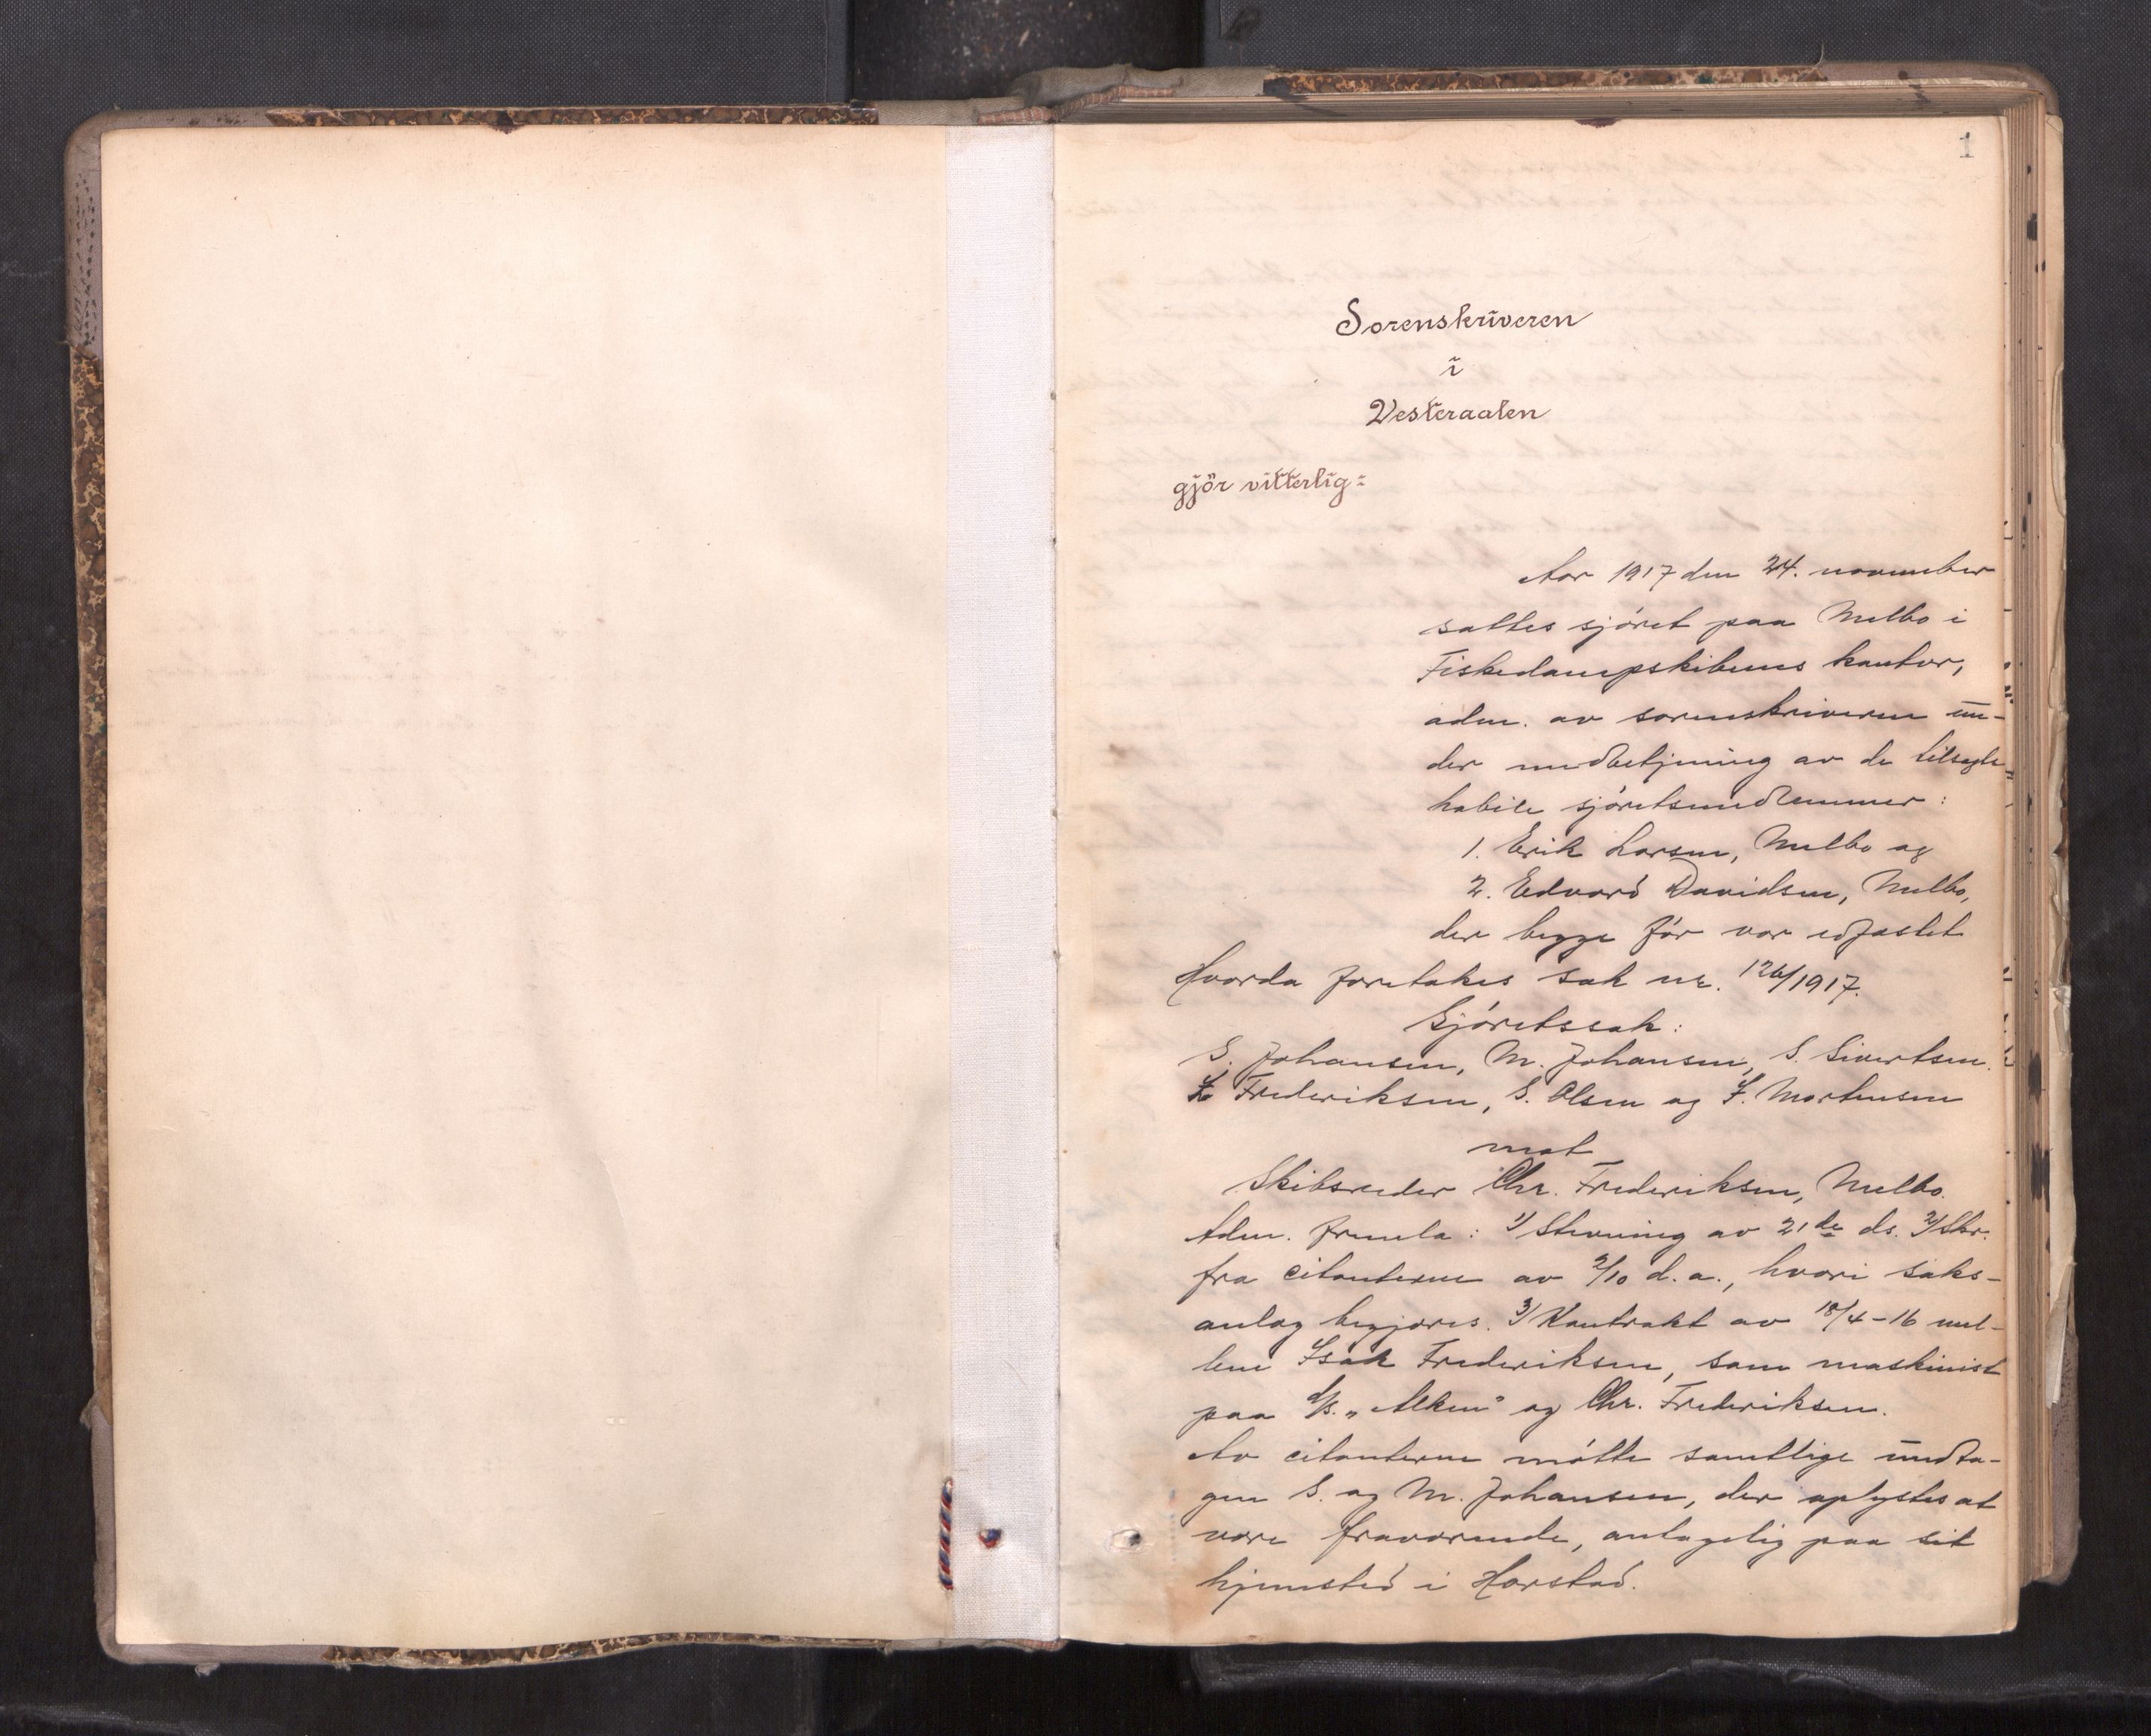 1
Sorenskriveren
i
Vesteraalen
gjör vitterlig:
Aar 1917 den 24. november
sattes sjöret paa Melbo i
Fiskedampskibenes kontor,
adm. av sorenskriveren un-
der medbetjening av de tilsagte
habile sjöretsmedlemmer:
1. Erik Larsen, Melbo og
2. Edvard Davidsen, Melbo,
der begge för var edfæstet
Hvorda foretakes sak nr. 126/1917.
Sjöretssak:
S. Johansen, M. Johansen, S. Sivertsen.
I. Frederiksen, S. Olsen og I. Mortensen
mot
Skibsreder Chr. Frederiksen, Melbo.
Adm. fremla: 1/ Stevning av 21de ds. 2/ Skr.
fra citanterne av 2/10 d.a., hvori saks-
anlæg begjæres. 3/ Kontrakt av 18/4-16 mel-
lem Isak Frederiksen, som maskinist
paa d/s. „Alken" og Chr. Frederiksen.
Av citanterne mötte samtlige undta-
gen S. og M. Johansen, der oplystes at
være fraværende, antagelig paa sit
hjemsted i Harstad.